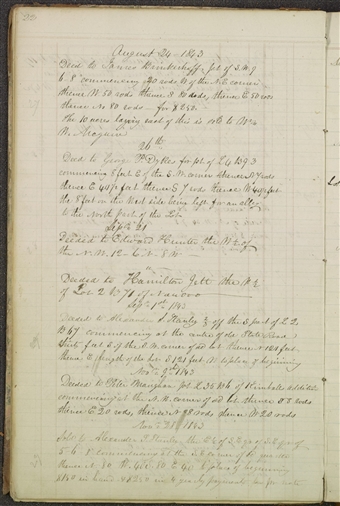 August 24 - 1843
Deed to James Brinkerhoff pt of S.W. 9
6. 8 commencing 40 rods W of the N.E. corner
thence W 50 rods thence S 80 rods, thence E 50 rods
thence No 80 rods — for $250.—
The 10 acres laying east of this is sold to Wm
M. Maguire
26th
Deed to George P. Dykes for pt of L 4 b 93
commencing 8 feet E of the S.W. corner thence N 7 rods
thence E 49½ feet thence S 7 rods thence W 49½ feet
the 8 feet on the West side being left for an alley
to the North part of the Lot
Sept 21
Deeded to Edward Hunter the W ½ of
the N.W. 12 - 6 N - 8 W —
"
Deeded to Hamilton Jett the W ½
of Lot 2 b 71 of Nauvoo
Sept 1st 1843
Deeded to Alexander Stanley off the S part of L 2
B 67 commencing at the centre of the State road
thirty feet E of the S.W. corner of sd lot thence N
thence E length of the lot S 121 feet W to place of beginning
Nov 9th 1843
Deeded to Peter Maughan pt L 35 B 6 of Kimballs Addition
commencing at the N.W. corner of sd lot thence S 8 rods
thence E 20 rods, thence N 8 rods thence W 20 rods
Nov 28 1843
Sold to Alexander Stanley the
5. 6. 8 commencing at the
thence N. 80 W. 40 S. 80 E 40 to place of beginning
$150 in hand & $250 in yearly payments